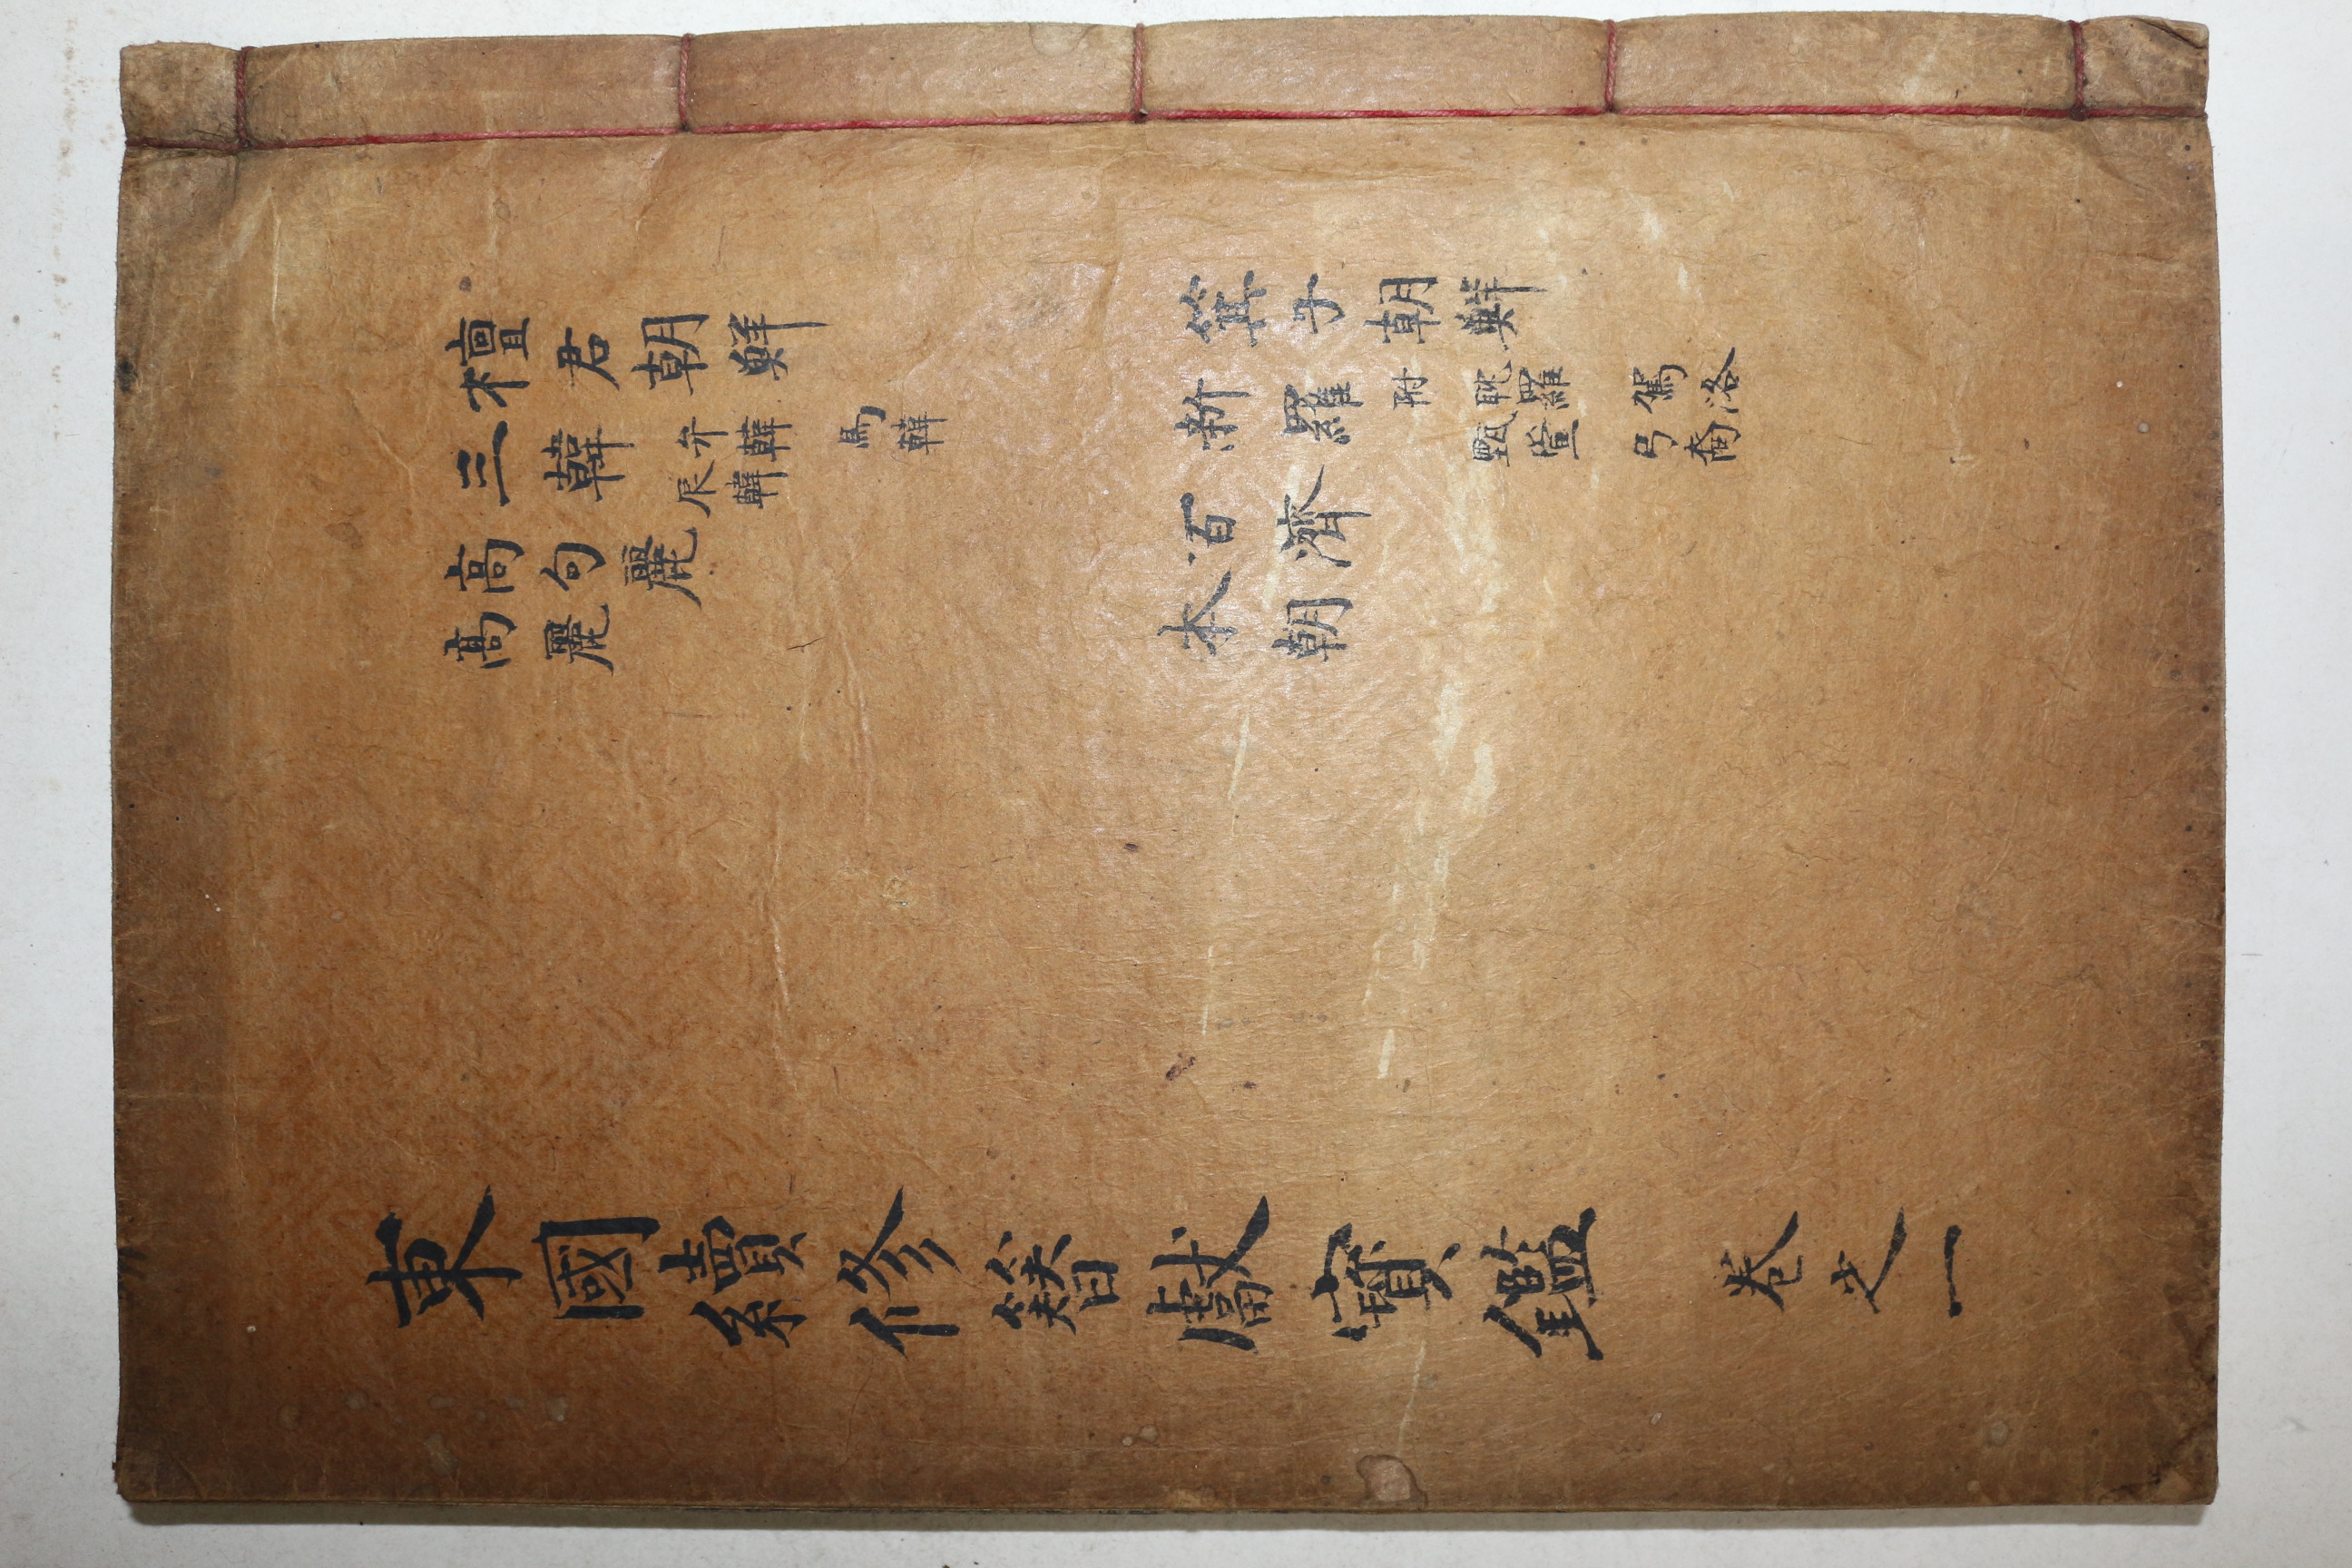 檀君朝鮮
箕子朝鮮
三韓 弁韓 馬韓
辰韓
新羅 附 耽羅 駕洛
甄萱 弓裔
高句麗
百濟
高麗
本朝
東國續修簪獻寶鑑 卷之一